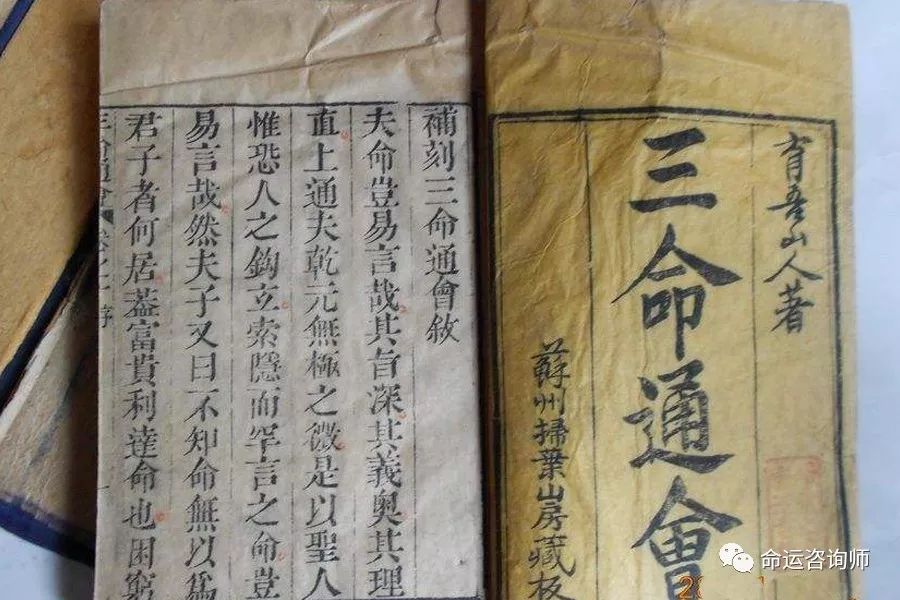 育吾山人著
三命通會
蘇州掃葉山房藏板
補刻三命通會敘
夫命豈易言哉其旨深其義奧其理
直上通夫乾元無極之微是以聖人
惟恐人之鈎玄索隱而罕言之命豈
易言哉然夫子又曰不知命無以爲
君子者何居葢富貴利達命也困窮
命运咨询师